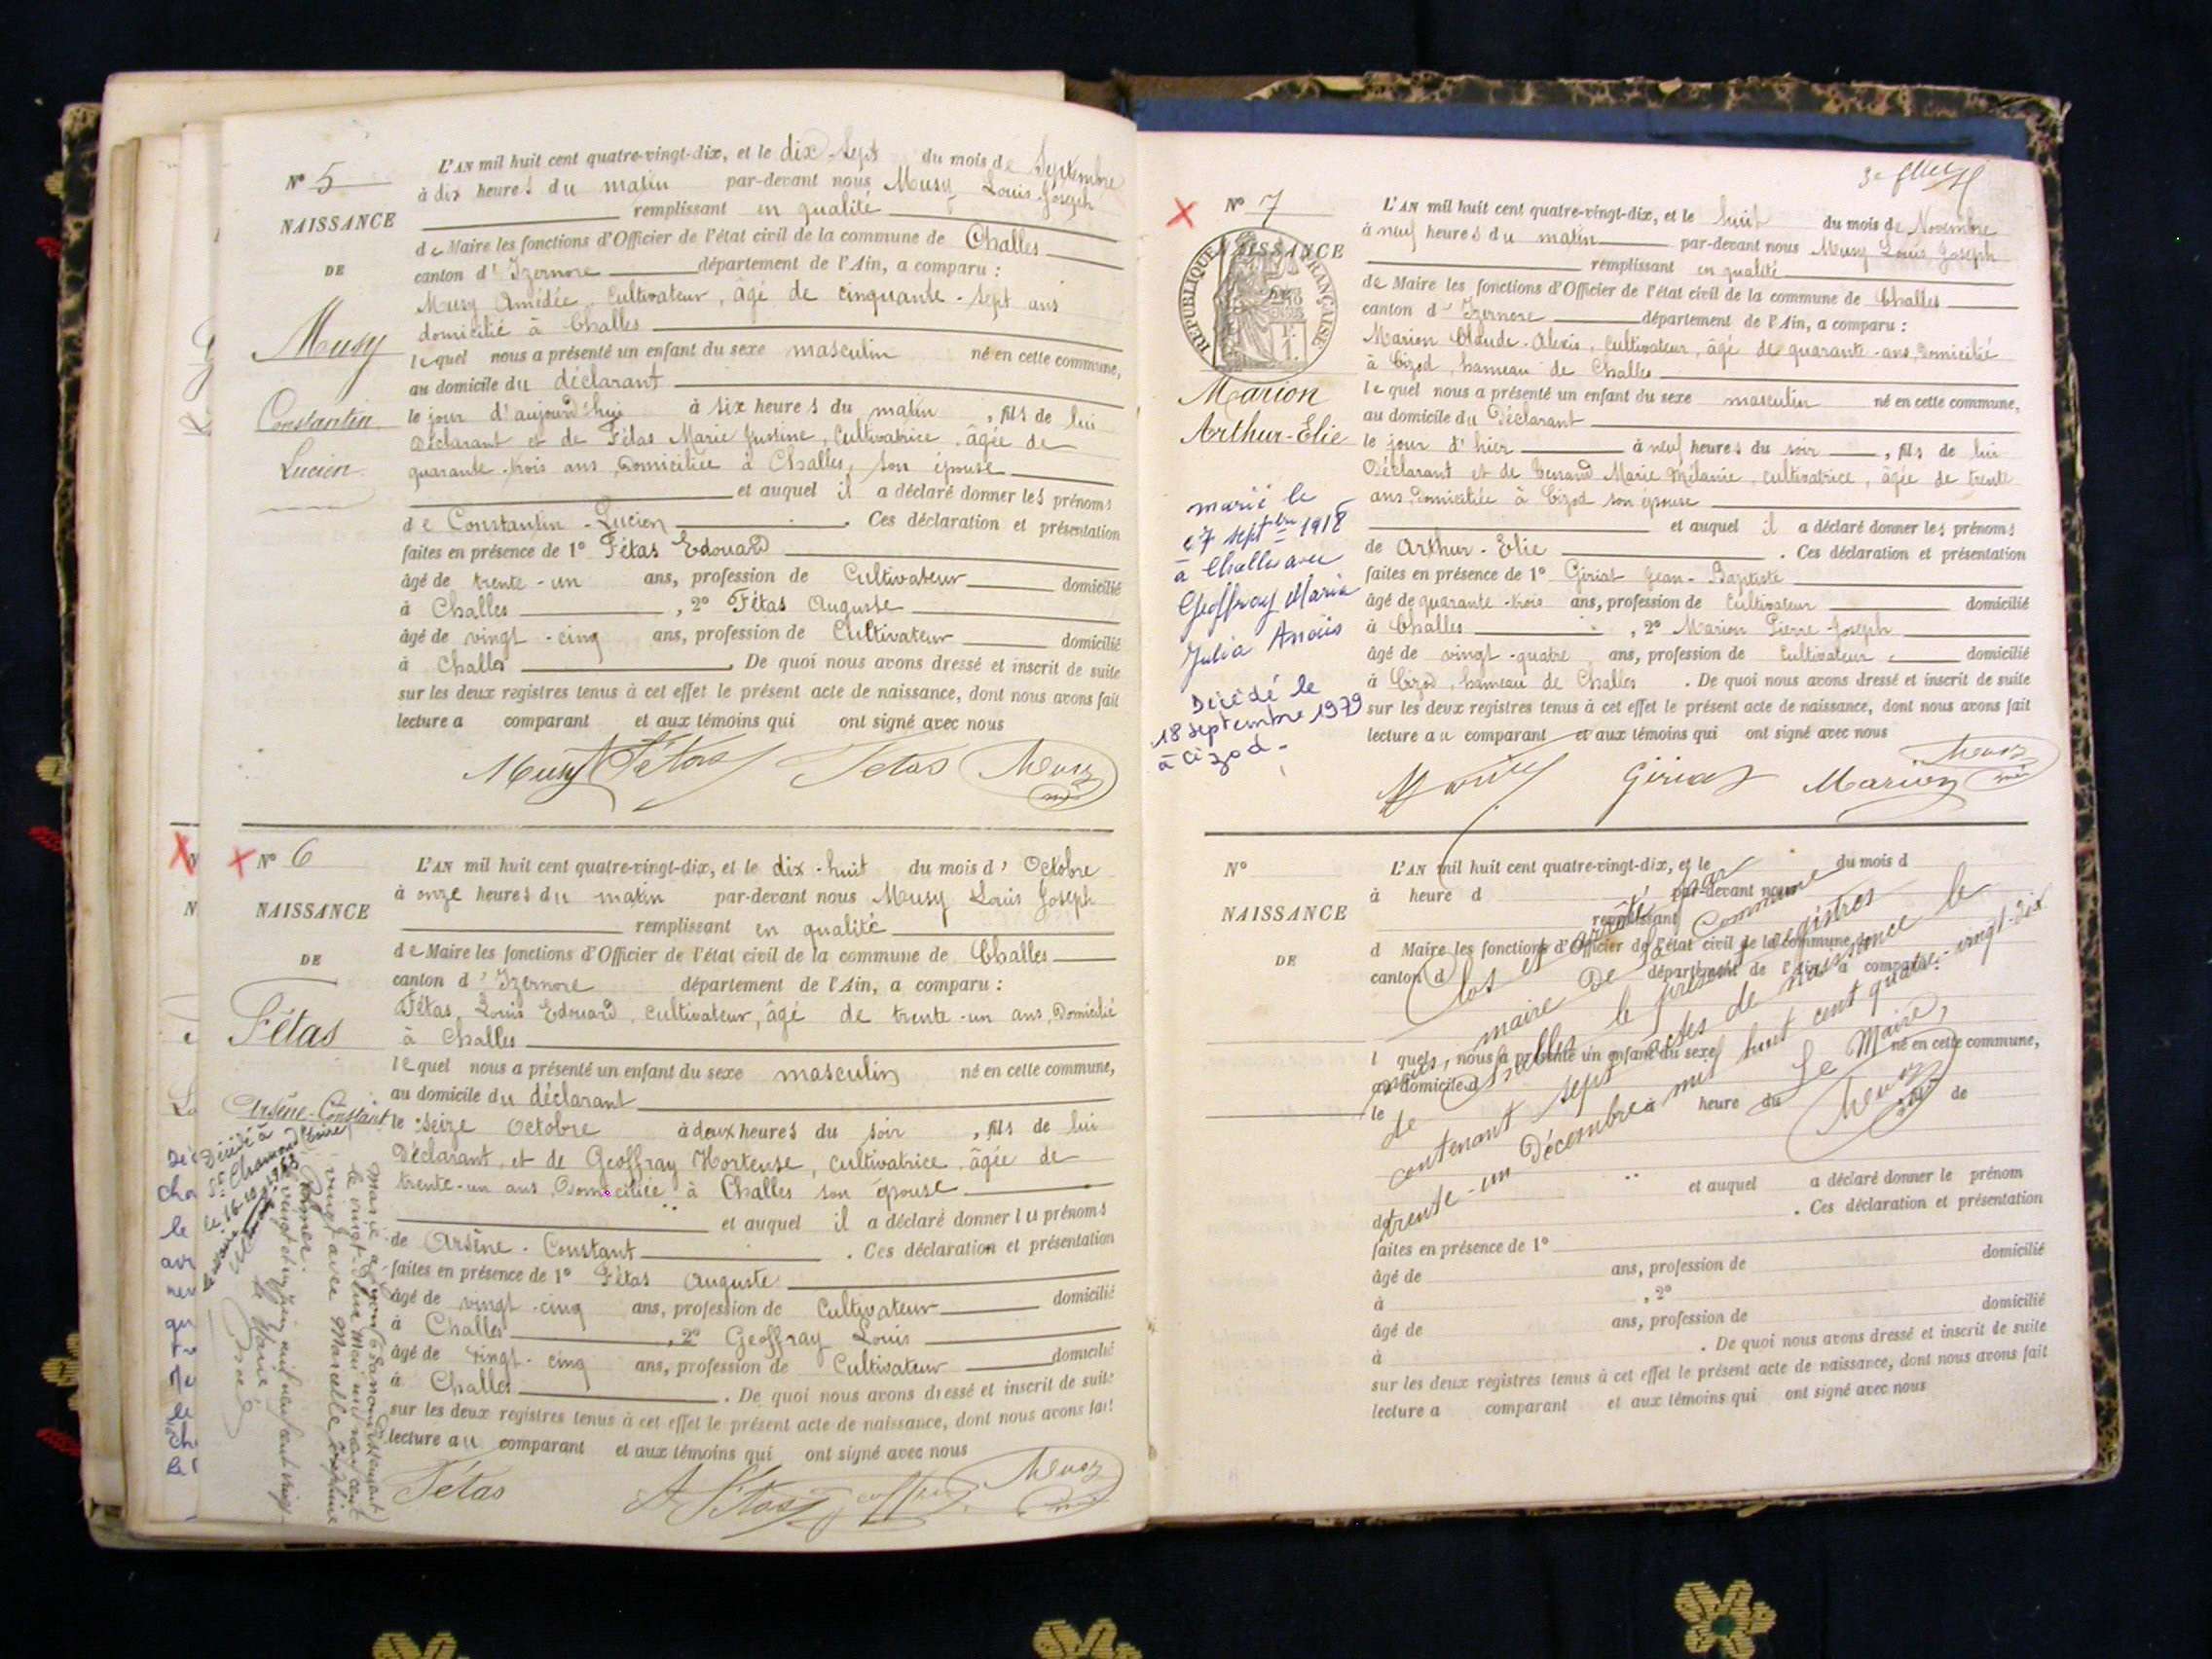 N° 5
NAISSANCE
DE
Musy
Constantin
Lucien
L'AN mil huit cent quatre-vingt-dix, et le dix-sept du mois de Septembre
à dix heures du matin par-devant nous Musy Louis Joseph
remplissant en qualité
de Maire les fonctions d'Officier de l'état civil de la commune de Challes
canton d'Izernore département de l'Ain, a comparu :
Musy Amédée, Cultivateur, âgé de cinquante-sept ans
domicilié à Challes
lequel nous a présenté un enfant du sexe masculin né en cette commune,
au domicile du déclarant
le jour d'aujourd'hui à six heures du matin, fils de lui
Déclarant et de Fétas Marie Justine, Cultivatrice, âgée de
quarante-trois ans, Domiciliée à Challes, son épouse
et auquel il a déclaré donner les prénoms
de Constantin-Lucien. Ces déclaration et présentation
faites en présence de 1° Fétas Edouard
âgé de trente-un ans, profession de Cultivateur domicilié
à Challes, 2° Fétas Auguste
âgé de vingt-cinq ans, profession de Cultivateur domicilié
à Challes. De quoi nous avons dressé et inscrit de suite
sur les deux registres tenus à cet effet le présent acte de naissance, dont nous avons fait
lecture a comparant et aux témoins qui ont signé avec nous
Musy Fétas Fetas Musy
N° 6
NAISSANCE
DE
Fétas
Arsène-Constant
Décédé à
St Chamond (Loire)
L'AN mil huit cent quatre-vingt-dix, et le dix-huit du mois d'Octobre
à onze heures du matin par-devant nous Musy Louis Joseph
remplissant en qualité
de Maire les fonctions d'Officier de l'état civil de la commune de Challes
canton d'Izernore département de l'Ain, a comparu :
Fétas, Louis Edouard, cultivateur, âgé de trente-un ans, Domicilié
à Challes
lequel nous a présenté un enfant du sexe masculin né en cette commune,
au domicile du déclarant
le seize Octobre à deux heures du soir, fils de lui
Déclarant, et de Geoffray Hortense, cultivatrice, âgée de
trente-un ans, Domiciliée à Challes son épouse
et auquel il a déclaré donner les prénoms
de Arsène-Constant. Ces déclaration et présentation
faites en présence de 1° Fétas Auguste
âgé de vingt-cinq ans, profession de Cultivateur domicilié
à Challes, 2° Geoffray Louis
âgé de vingt-cinq ans, profession de Cultivateur domicilié
à Challes. De quoi nous avons dressé et inscrit de suite
sur les deux registres tenus à cet effet le présent acte de naissance, dont nous avons fait
lecture au comparant et aux témoins qui ont signé avec nous
Fétas A Fétas Musy
N° 7
NAISSANCE
RÉPUBLIQUE FRANÇAISE
Marion
Arthur-Elie
marié le
7 septbre 1918
à Challes avec
Geoffray Maria
Julia Anaïs
Décédé le
18 septembre 1979
à Cizod-
L'AN mil huit cent quatre-vingt-dix, et le huit du mois de Novembre
à neuf heures du matin par-devant nous Musy Louis Joseph
remplissant en qualité
de Maire les fonctions d'Officier de l'état civil de la commune de Challes
canton d'Izernore département de l'Ain, a comparu :
Marion Claude-Alexis, Cultivateur, âgé de quarante-ans, Domicilié
à Cizod, hameau de Challes
lequel nous a présenté un enfant du sexe masculin né en cette commune,
au domicile du Déclarant
le jour d'hier à neuf heures du soir, fils de lui
Déclarant et de Marie Mélanie, cultivatrice, âgée de trente
ans, Domiciliée à Cizod son épouse
et auquel il a déclaré donner les prénoms
de Arthur-Elie. Ces déclaration et présentation
faites en présence de 1° Giriat Jean-Baptiste
âgé de quarante-trois ans, profession de Cultivateur domicilié
à Challes, 2° Marion Pierre Joseph
âgé de vingt-quatre ans, profession de Cultivateur domicilié
à Cizod, hameau de Challes. De quoi nous avons dressé et inscrit de suite
sur les deux registres tenus à cet effet le présent acte de naissance, dont nous avons fait
lecture au comparant et aux témoins qui ont signé avec nous
Giriat Marion Musy
N°
NAISSANCE
DE
L'AN mil huit cent quatre-vingt-dix, et le du mois d
à heure d par-devant nous
remplissant
d Maire les fonctions d'Officier de l'état civil de la commune
canton d département de l'Ain, a comparu :
l quel, nous a présenté un enfant du sexe né en cette commune,
au domicile d
le à heure du de
et auquel a déclaré donner le prénom
de . Ces déclaration et présentation
faites en présence de 1°
âgé de ans, profession de domicilié
à , 2°
âgé de ans, profession de domicilié
à . De quoi nous avons dressé et inscrit de suite
sur les deux registres tenus à cet effet le présent acte de naissance, dont nous avons fait
lecture a comparant et aux témoins qui ont signé avec nous
Clos et arrêté par
nous, maire de la Commune
de Challes le présent registres
contenant sept actes de naissance le
trente-un Décembre mil huit cent quatre-vingt-dix
Le Maire,
Musy